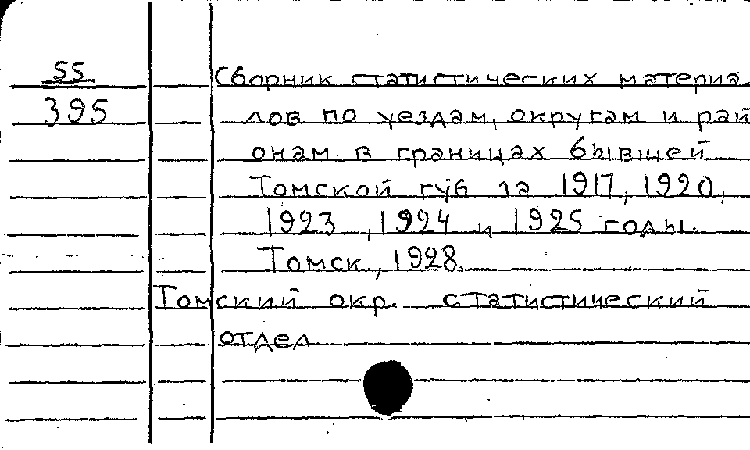 55
395
Сборник статистических материа
лов по уездам, округам и рай
онам в границах бывшей
Томской губ за 1917, 1920,
1923, 1924 и 1925 годы.
Томск, 1928.
Томский окр. статистический
отдел